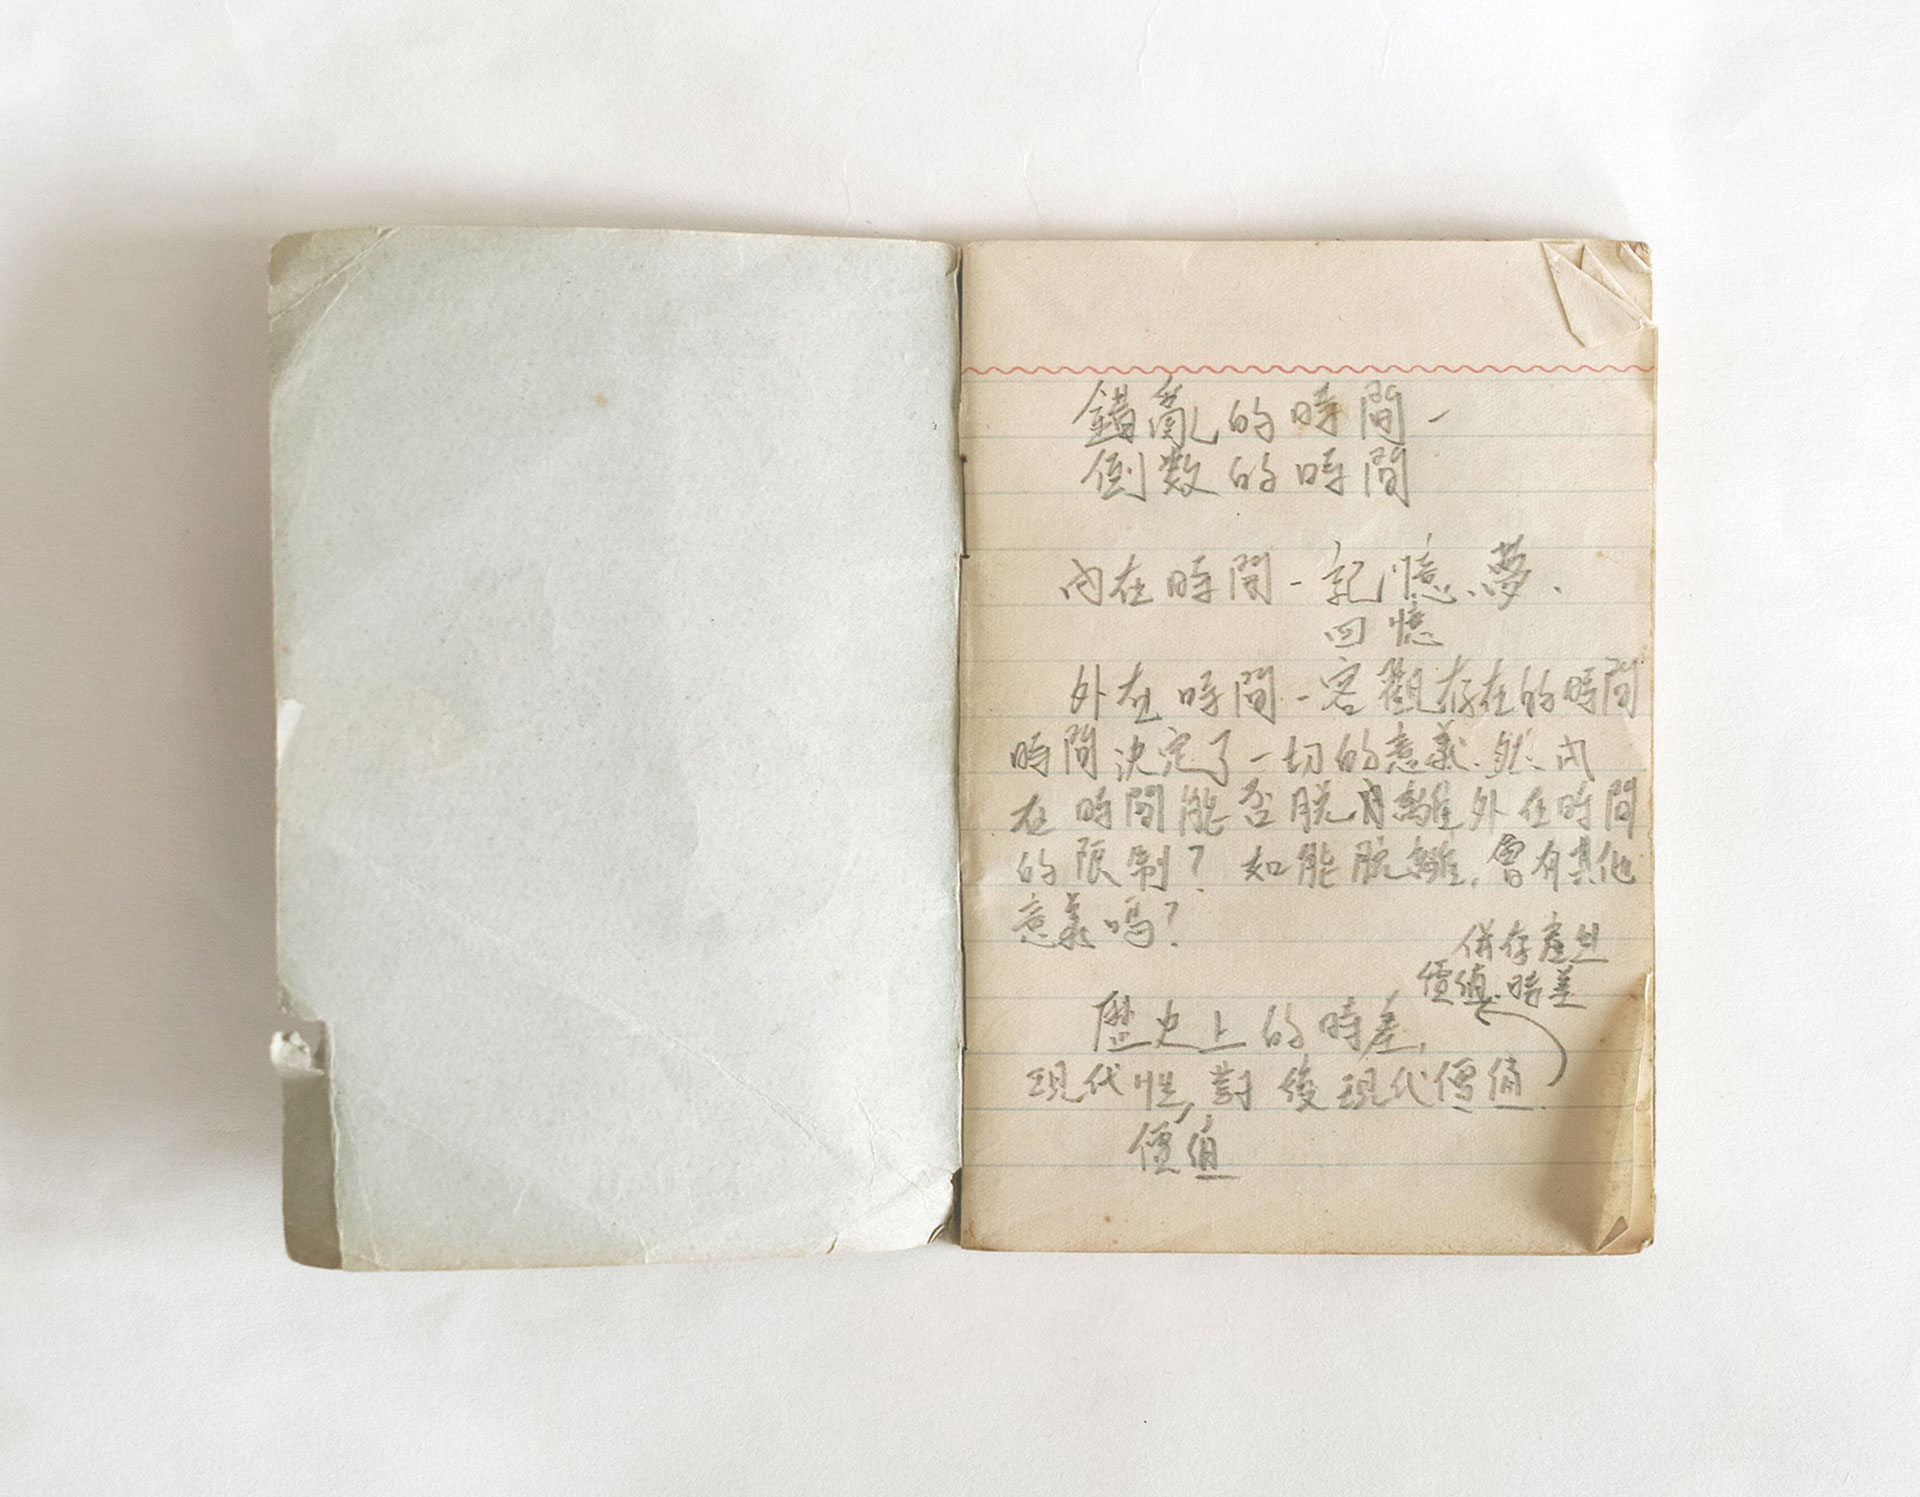 錯亂的時間-
倒數的時間
內在時間-記憶、夢、
回憶
外在時間-客觀存在的時間
時間決定了一切的意義.然、內
在時間能否脫離外在時間
的限制?如能脫離,會有其他
意義嗎?
併存產生
價值.時差
歷史上的時差,
現代性,對後現代價值.
價值